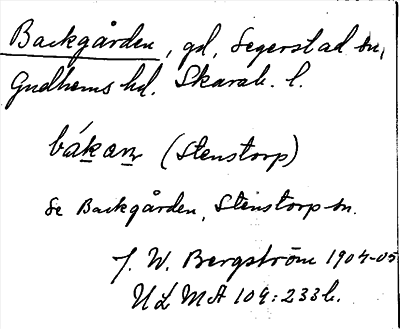 Backgården, gd, Segerstad sn,
Gudhems hd. Skarab. l.
bákan (Stenstorp)
se Backgården, Stenstorp sn.
J. W. Bergström 1904-05
ULMA 104:233 b.